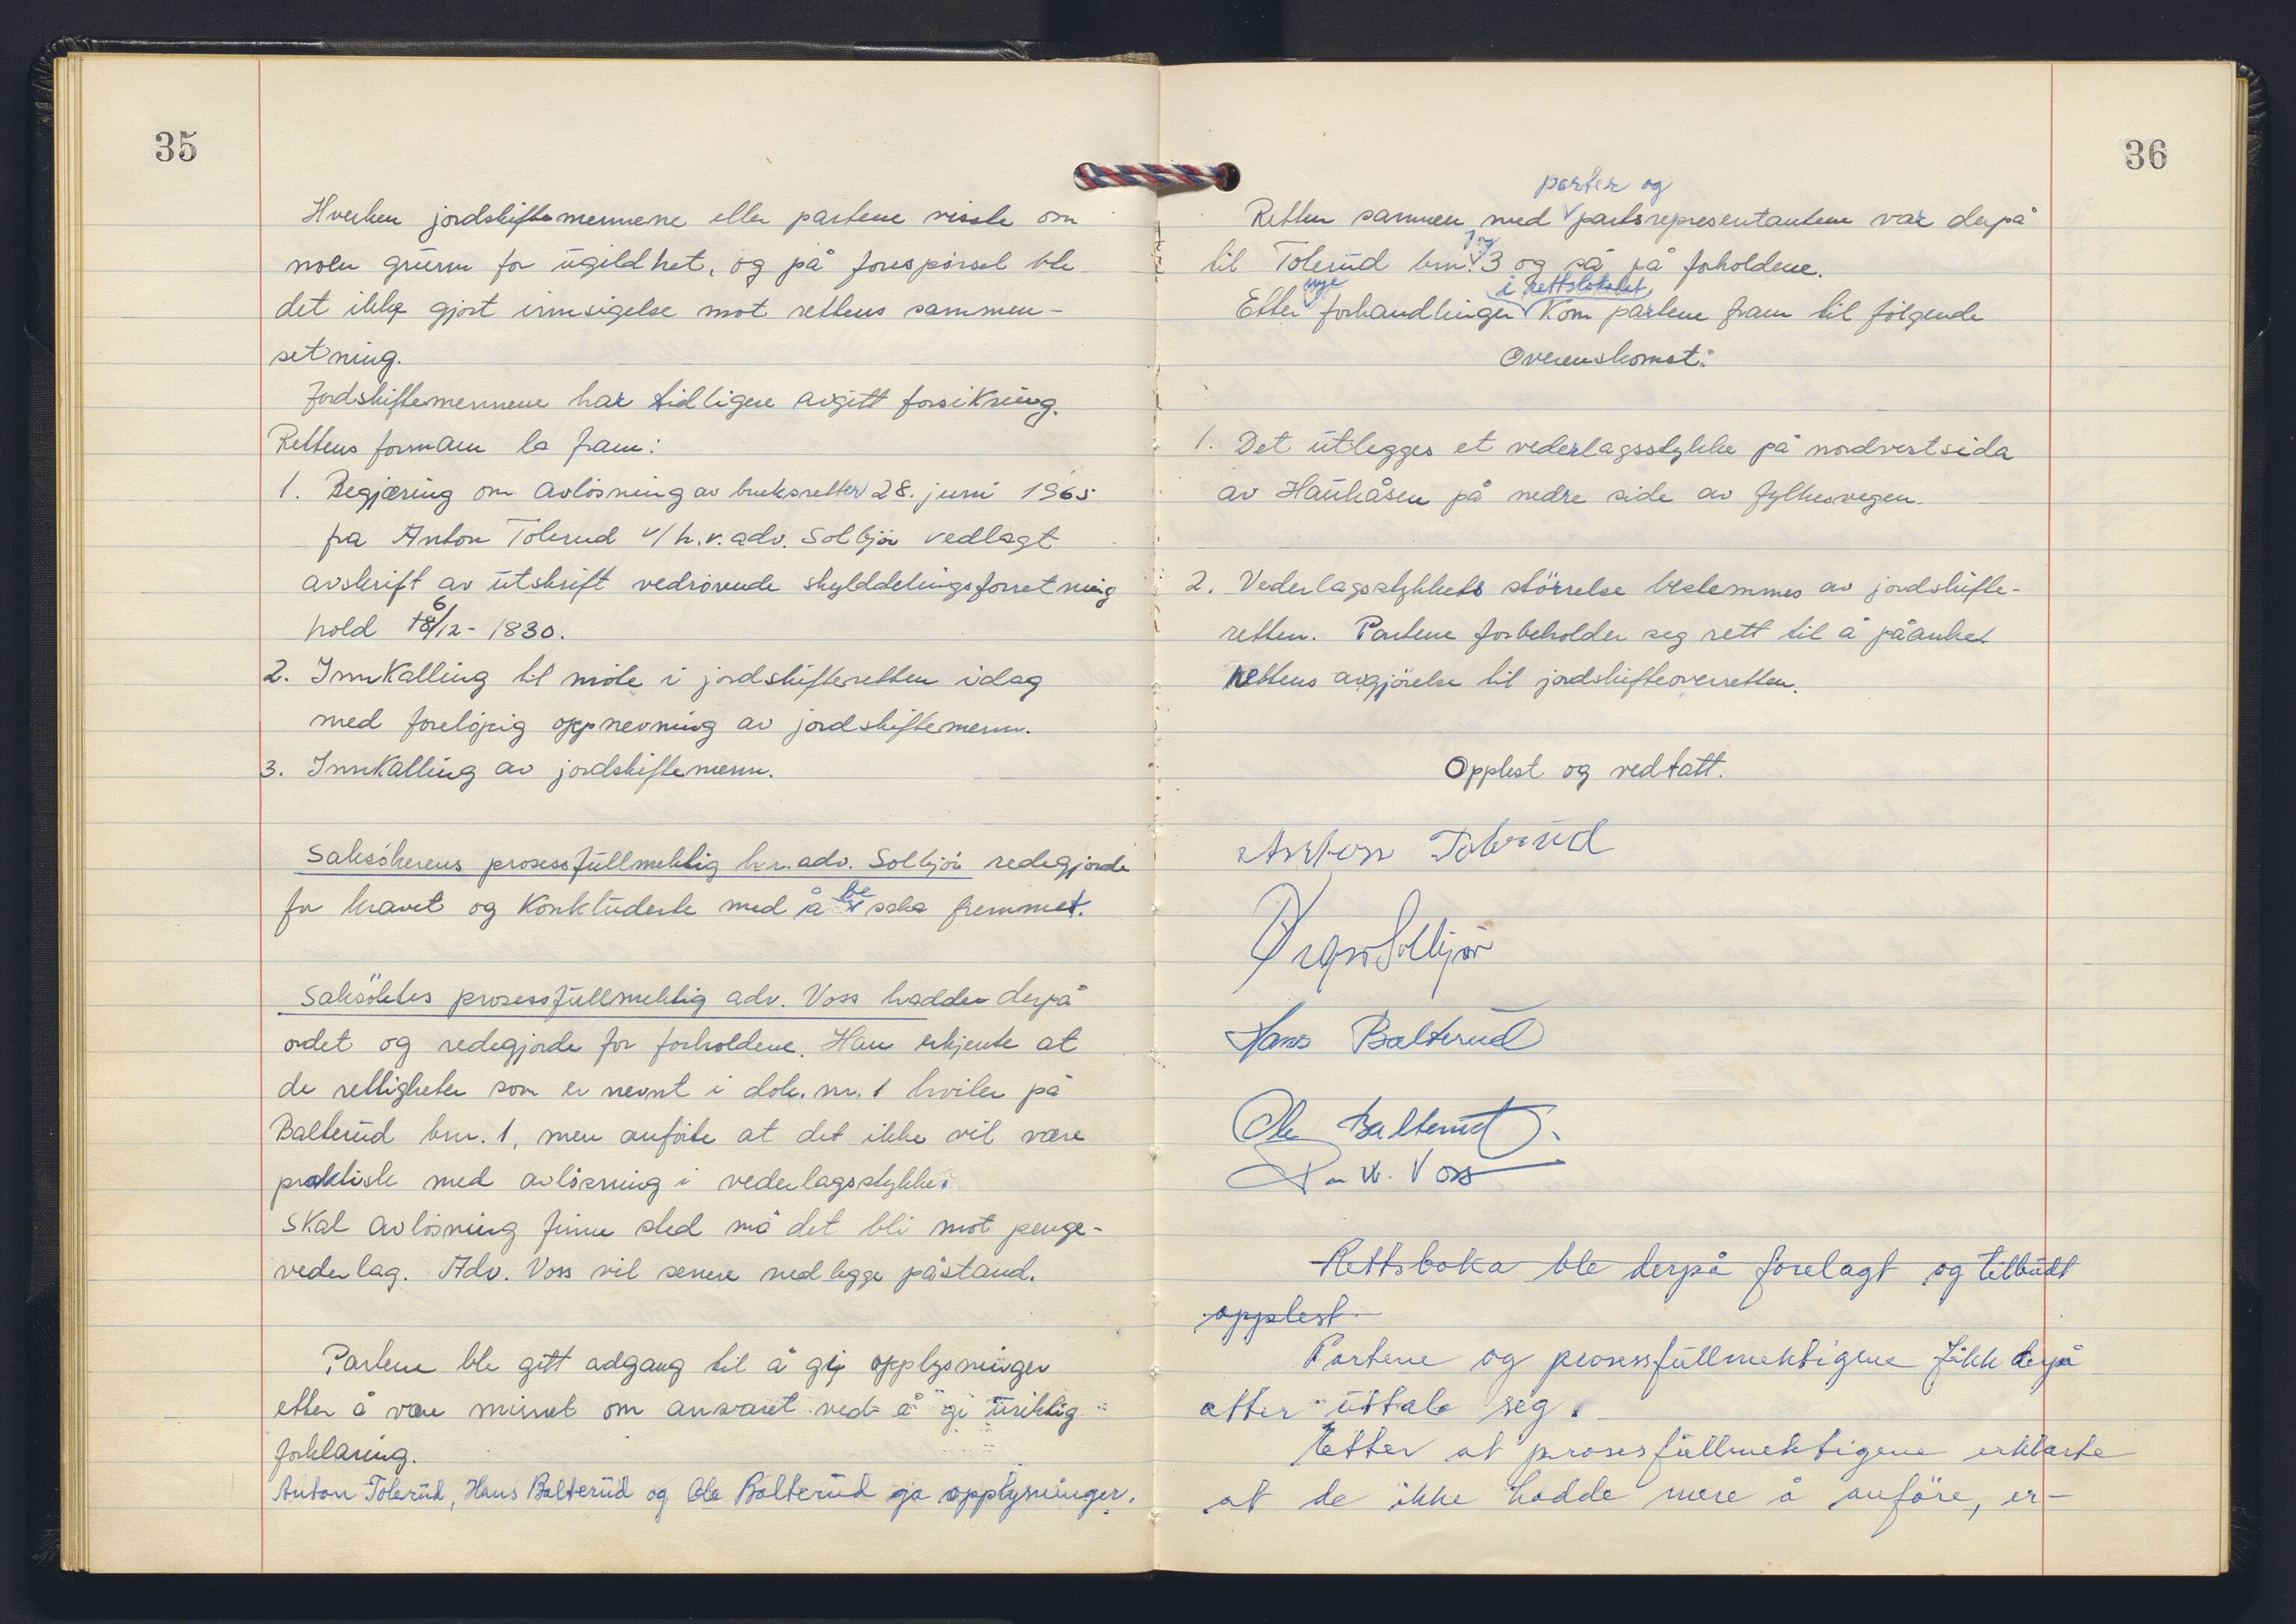 35
Hverken jordskiftemennene eller partene visste om
noen grunn for ugildhet, og på forespørsel ble
det ikke gjort innsigelse mot rettens sammen-
setning.
Jordskiftemennene har tidligere avgitt forsikring.
Rettens formann la fram:
1. Begjæring om avløsning av bruksretter 28. juni 1965
fra Anton Tolerud v/ h.r.adv. Solbjør vedlagt
avskrift av utskrift vedrørende skylddelingsforretning
hold 6/12- 1830.
2. Innkalling til møte i jordskifteretten idag
med foreløpig oppnevning av jordskiftemenn.
3. Innkalling av jordskiftemenn.
Saksøkerens prosessfullmektig h.r.adv. Solbjør redegjorde
for kravet og konkluderte med å be saka fremmet.
Saksøktes prosessfullmektig adv. Voss hadde derpå
ordet og redegjorde for forholdene. Han erkjente at
de rettigheter som er nevnt i dok. nr. 1 hviler på
Balterud bnr. 1, men anførte at det ikke vil være
praktisk med avløsning i vederlagsstykke.
Skal avløsning finne sted må det bli mot penge-
vederlag. Adv. Voss vil senere nedlegge påstand.
Partene ble gitt adgang til å gi opplysninger
etter å være minnet om ansvaret ved å gi uriktig
forklaring.
Anton Tolerud, Hans Balterud og Ole Balterud ga opplysninger.
36
parter og
Retten sammen med partsrepresentantene var derpå
1 og
til Tolerud bnr. 3 og så på forholdene.
nye i rettslokalet
Etter forhandlinger kom partene fram til følgende
Overenskomst:
1. Det utlegges et vederlagsstykke på nordvestsida
av Haukåsen på nedre side av fylkesvegen.
2. Vederlagsstykkets størrelse bestemmes av jordskifte-
retten. Partene forbeholder seg rett til å påanke
rettens avgjørelse til jordskifteoverretten.
Opplest og vedtatt.
Anton Tolerud
Solbjør
Hans Balterud
Ole Balterud
Voss
Rettsboka ble derpå forelagt og tilbudt
opplest
Partene og prosessfullmektigene fikk derpå
atter uttale seg.
Etter at prosessfullmektigene erklærte
at de ikke hadde mere å anføre, er-